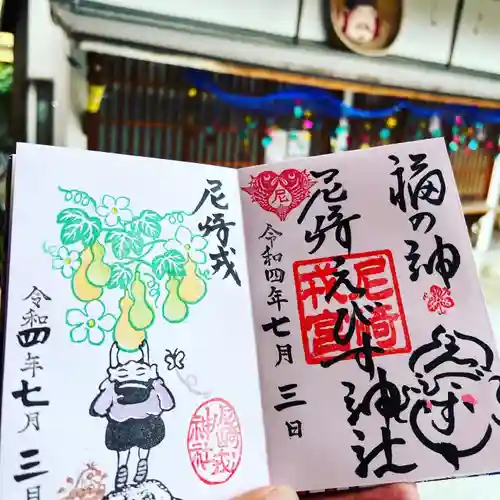 福の神
尼崎えびす神社
尼
令和四年七月三日
尼崎
戎宮
尼崎戎
令和四年七月三日
尼崎戎
神社